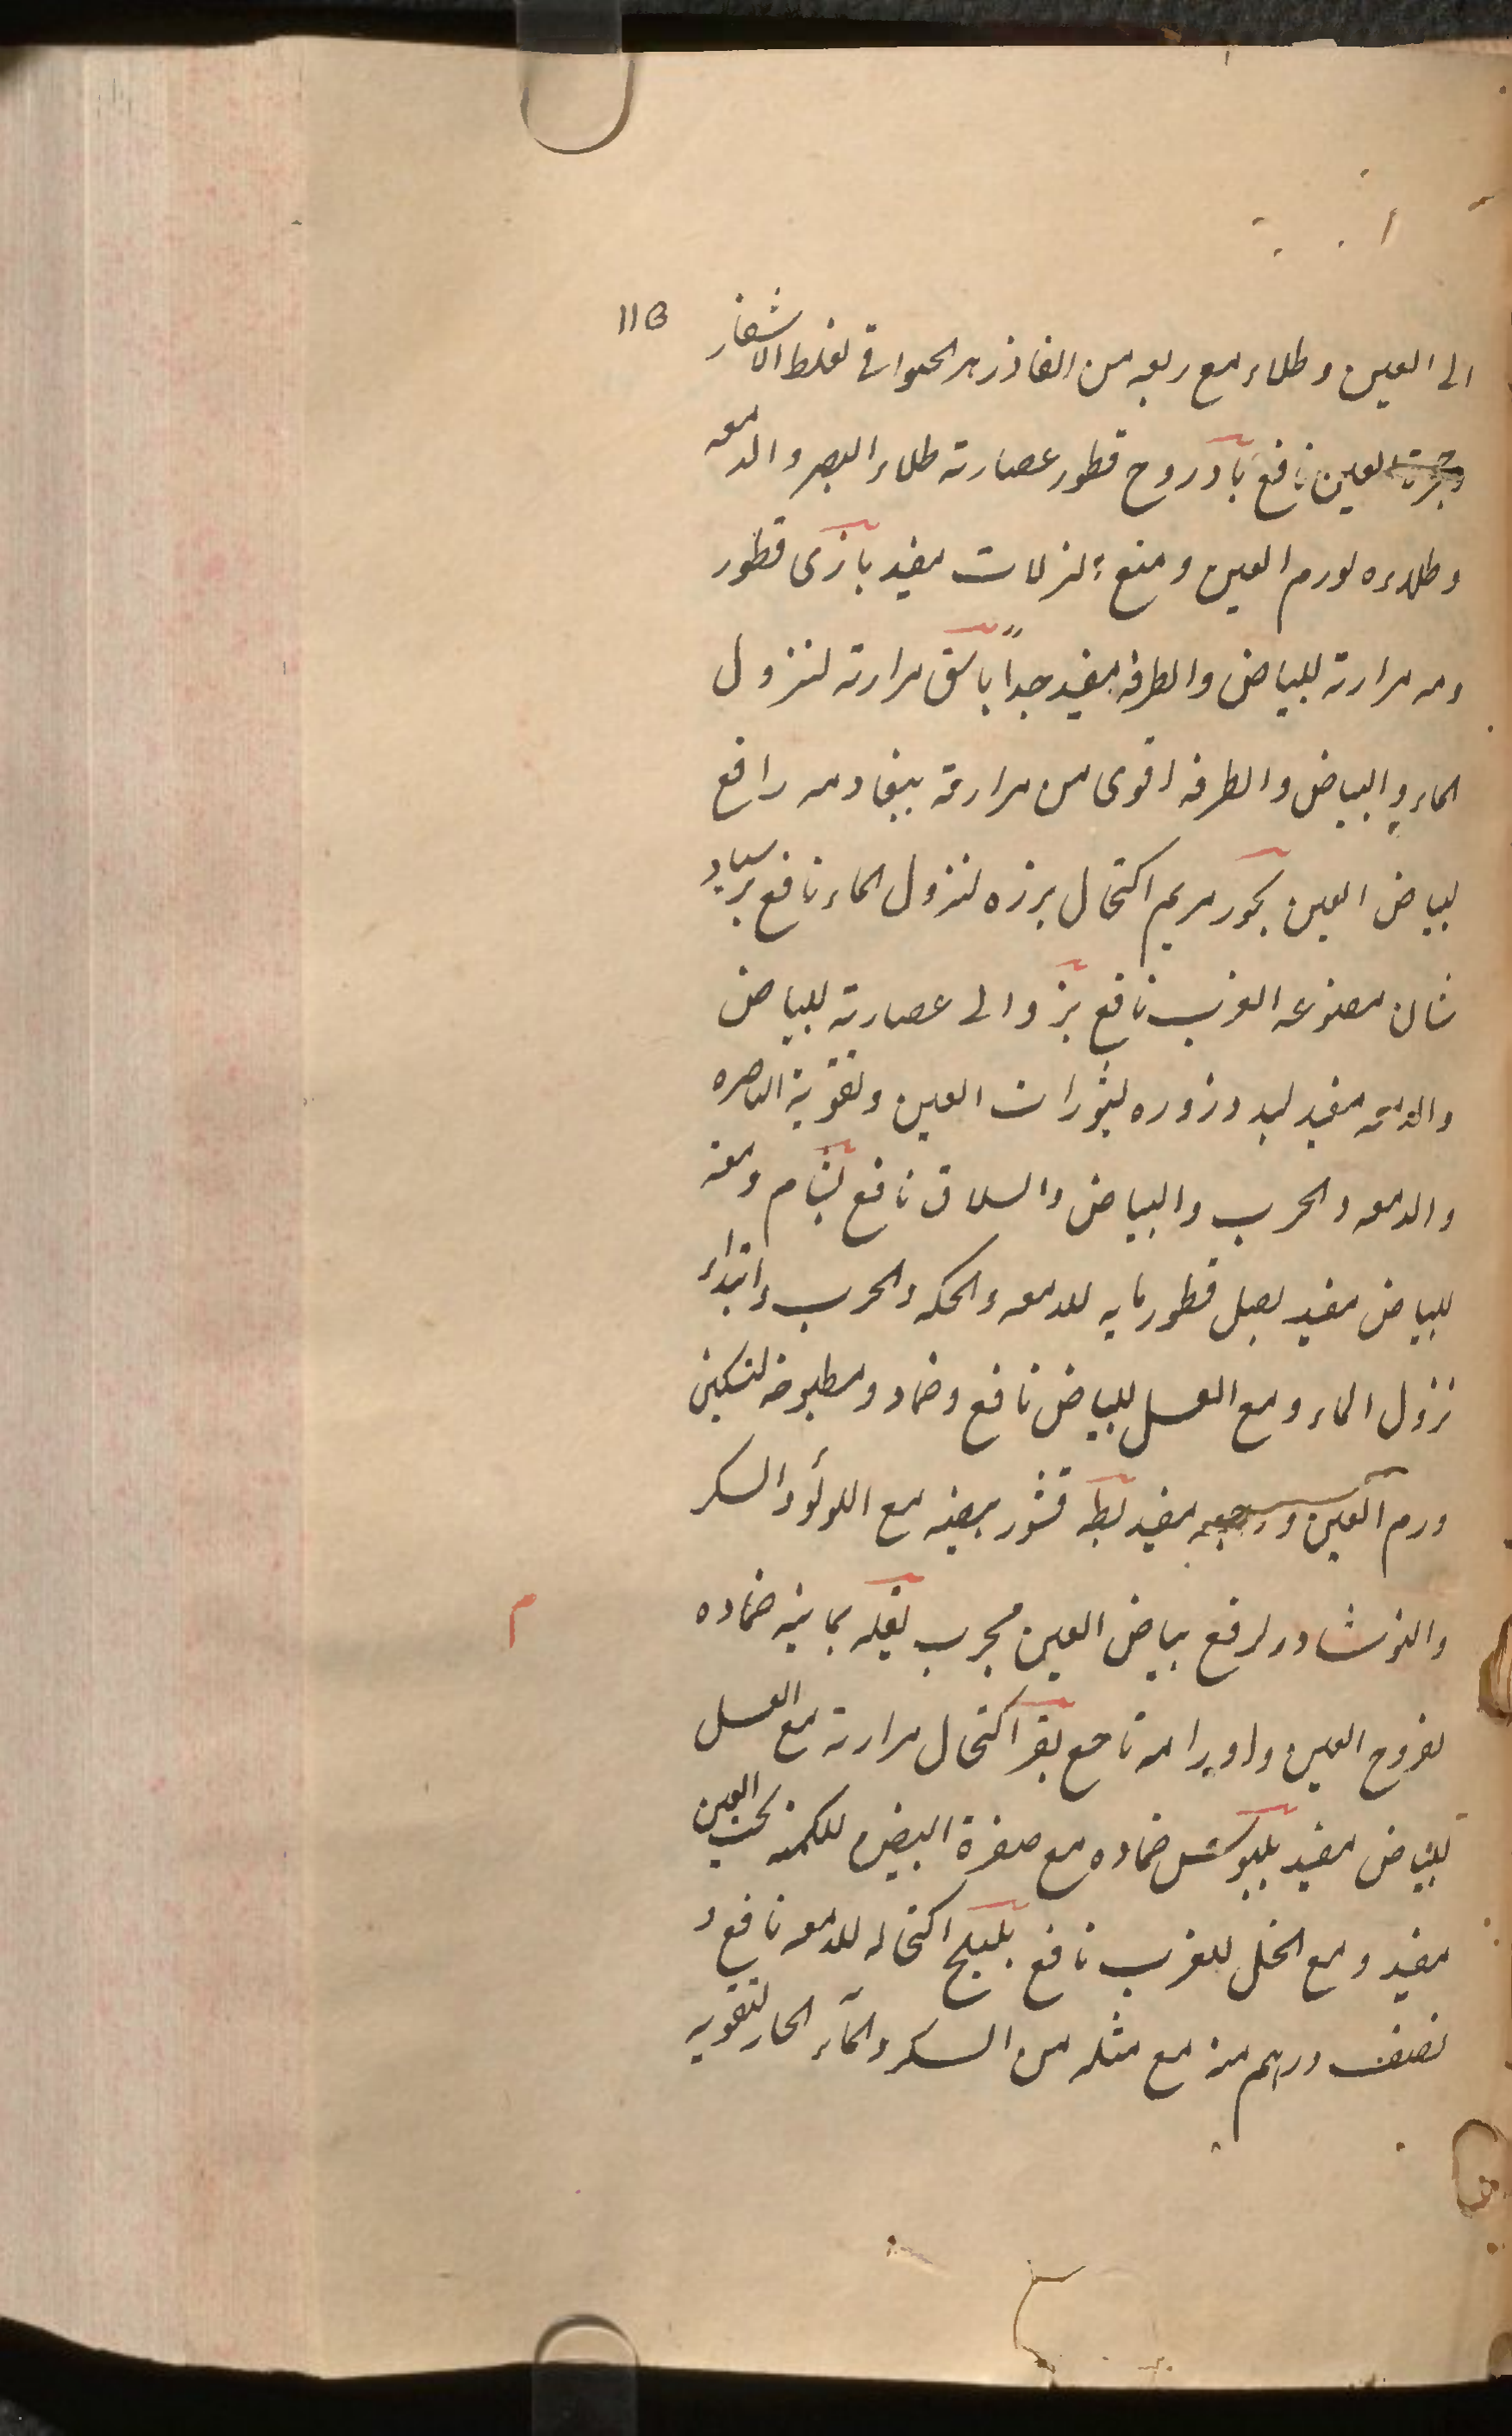 11B
الى العين وطلاء مع ربعه من الفاذزهر الحيوانى لغلظ الاشفار
وجرب العين نافع بادروج قطور عصارته طلاء البصر والدمعه
وطلاءه لورم العين ومنع النزلات مفيد بازى قطور
دمه مرارته للبياض والطرفه مفيد جداً باشق مرارته لنزول
الماء والبياض والطرفه اقوى من مرارته ببغا دمه رافع
لبياض العين بخور مريم اكتحال بزره لنزول الماء نافع
مصنوعه الغرب نافع عصارته للبياض
والدمعه مفيد بسد وزروره لبثورات العين وتقوية الباصره
والدمعه والجرب والبياض والسلاق نافع بشام دمعه
للبياض مفيد بصل قطور مايه للدمعه والحكه والجرب وابتداء
نزول الماء ومع العسل للبياض نافع وضماد مطبوخه لتسكين
ورم العين ووجعه مفيد بطه قشور بيضه مع اللولؤ والسكر
والنوشادر لرفع بياض العين مجرب بقله يمانيه ضماده
م
لقروح العين واورامه ناجع بقر اكتحال مرارته مع العسل
للبياض مفيد بلبوس ضماده مع صفرة البيض للكمنه تحت العين
مفيد ومع الخل للغرب نافع بليلج اكتحاله للدمعه نافع و
نصف درهم منه مع مثله من السكر والماء الحار لتقويه